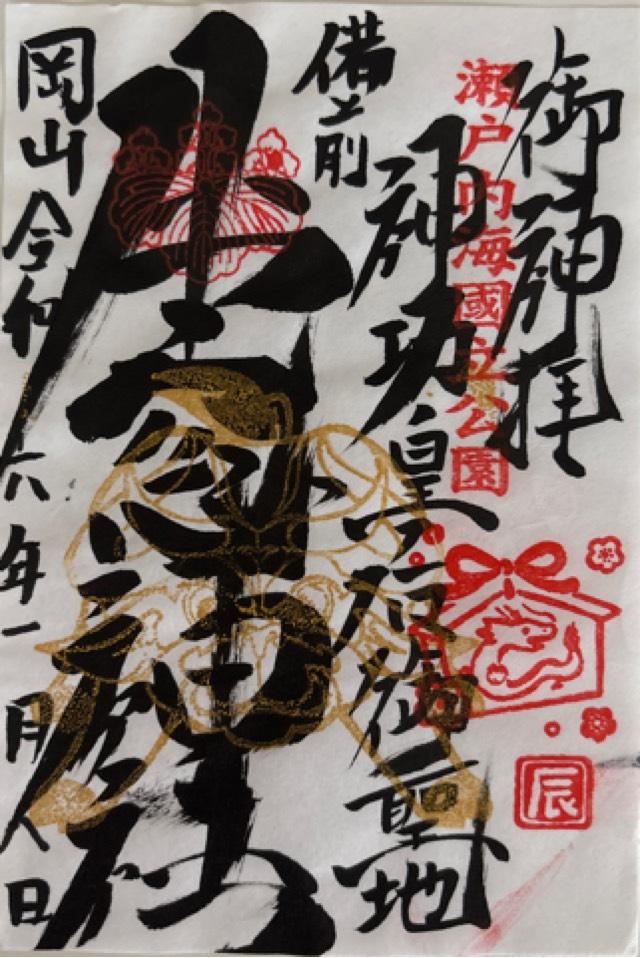 御神拝
瀬戸内海國立公園
神功皇后御聖地
備前
牛窓神社
岡山 令和六年一月八日
辰